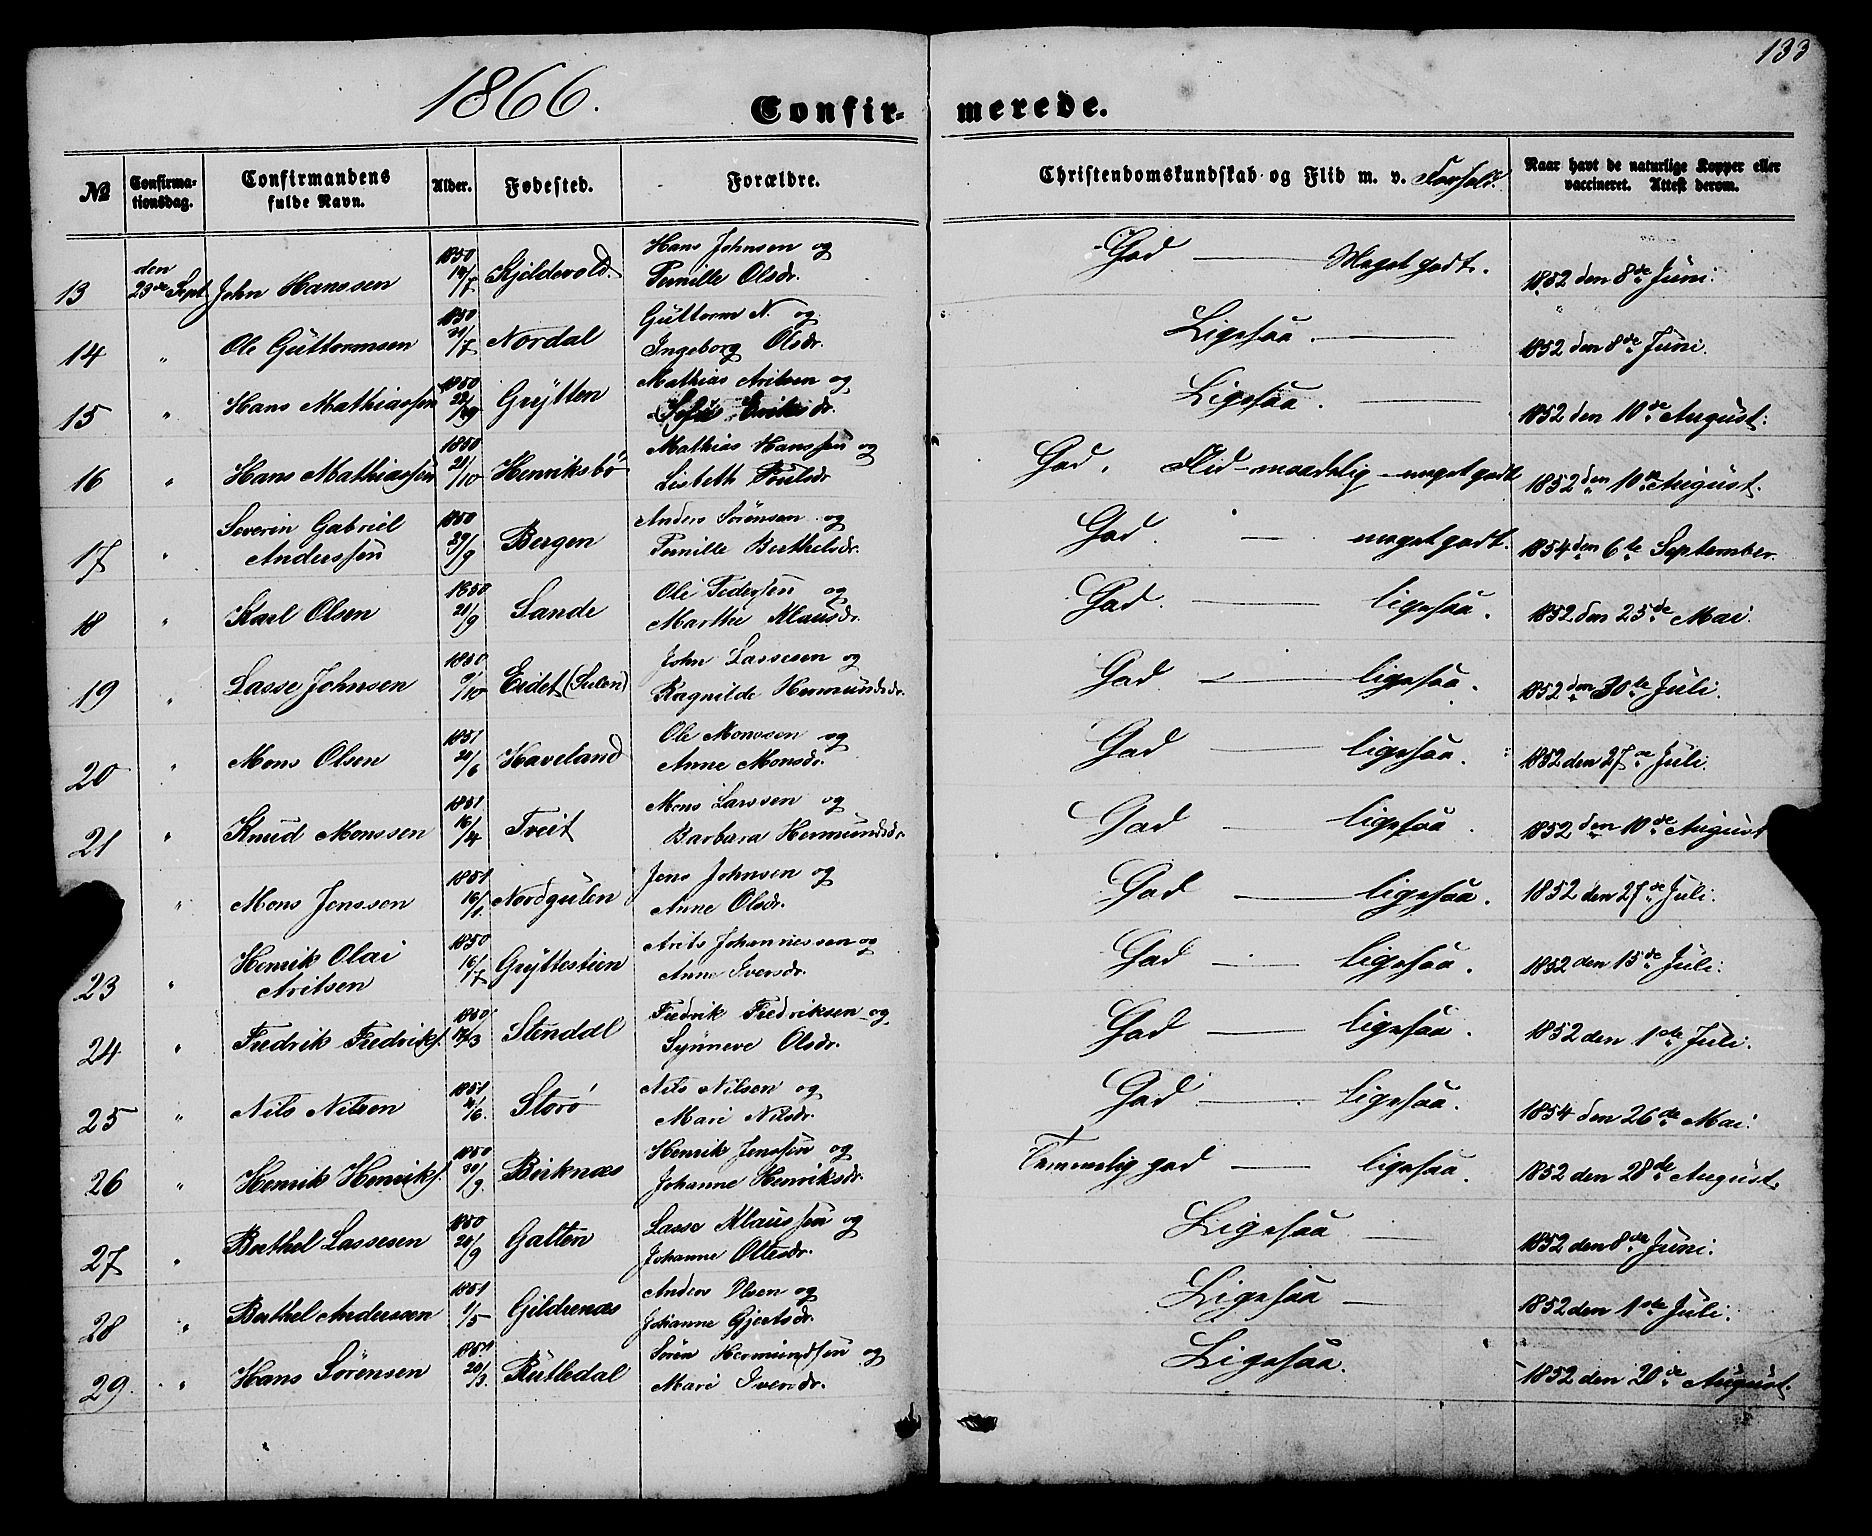 133
1866.
Confirmerede.
№ Confirmationsdag. Confirmandens fulde Navn. Alder. Fødested. Forældre. Christendomskundskab og Flid m. v. Forhold. Naar havt de naturlige Kopper eller vaccineret. Attest derom.
13 den 23de Sept John Hanssen 1850 14/7 Kjeldevold. Hans Johnsen og Pernille Olsdr. God — Meget godt. 1852 den 8de Juni.
14 " Ole Guttormsen 1850 21/7 Nordal Guttorm N. og Ingeborg Olsdr. Ligesaa. — 1852 den 8de Juni.
15 " Hans Mathiassen 1850 Grytten Mathias Aritsen og Ligesaa. — 1852 den 10de August.
16 " Hans Mathiassen 1850 21/10 Henriksbø Mathias Hanssen og Lisbeth Poulsdr God. Flid maadelig - meget godt 1852 den 10de August.
17 " Severin Gabriel Anderssen 1850 29/9 Bergen Anders Sørensen og Pernille Berthelsdr. God. — meget godt. 1854 den 6te September.
18 " Karl Olsen 1850 21/9 Sande Ole Pedersen og Marthe Klausdr. God. — ligesaa. 1852 den 25de Mai.
19 " Lasse Johnsen 1850 9/10 Eidet (Sulen) John Lassesen og Ragnilde Hermundsdr. God — ligesaa. 1852 den 30te Juli.
20 " Mons Olsen 1851 21/6 Haveland Ole Monssen og Anne Monsdr. God — ligesaa. 1852 den 27de Juli.
21 " Knud Monssen 1851 16/4 Tveit Mons Larssen og Barbara Hermundsdr. God — ligesaa. 1852 den 10de August
" Mons Jenssen 1851 16/1 Nordgulen Jens Johnsen og Anne Olsdr. God — ligesaa. 1852 den 27de Juli.
23 " Henrik Olai Aritsen 1850 16/7 Gryttestien Arits Johannessen og Anne Iversdr. God — ligesaa. 1852 den 15de Juli.
24 " Fredrik Fredriks. 1850 Stendal Fredrik Fredriksen og Synneve Olsdr. God — ligesaa. 1852 den 1ste Juli.
25 " Nils Nilsen 1851 Storø Nils Nilsen og Mari Nilsdr. God — ligesaa. 1854 den 26de Mai.
26 " Henrik Henriks. 1850 30/9. Birknæs Henrik Jenssen og Johanne Henriksdr. Temmelig god — ligesaa. 1852 den 28de August.
27 " Berthel Lassesen 1850 20/9 Galten Lasse Klaussen og Johanne Ottesdr. Ligesaa — 1852 den 8de Juni.
28 " Berthel Anderssen 1851 1/5 Gildrenæs Anders Olsen og Johanne Gjertsdr. Ligesaa — 1852 den 1ste Juli.
29. " Hans Sørensen 20/3. Rutledal Søren Hermundsen og Mari Iversdr. Ligesaa. 1852 den 20de August.